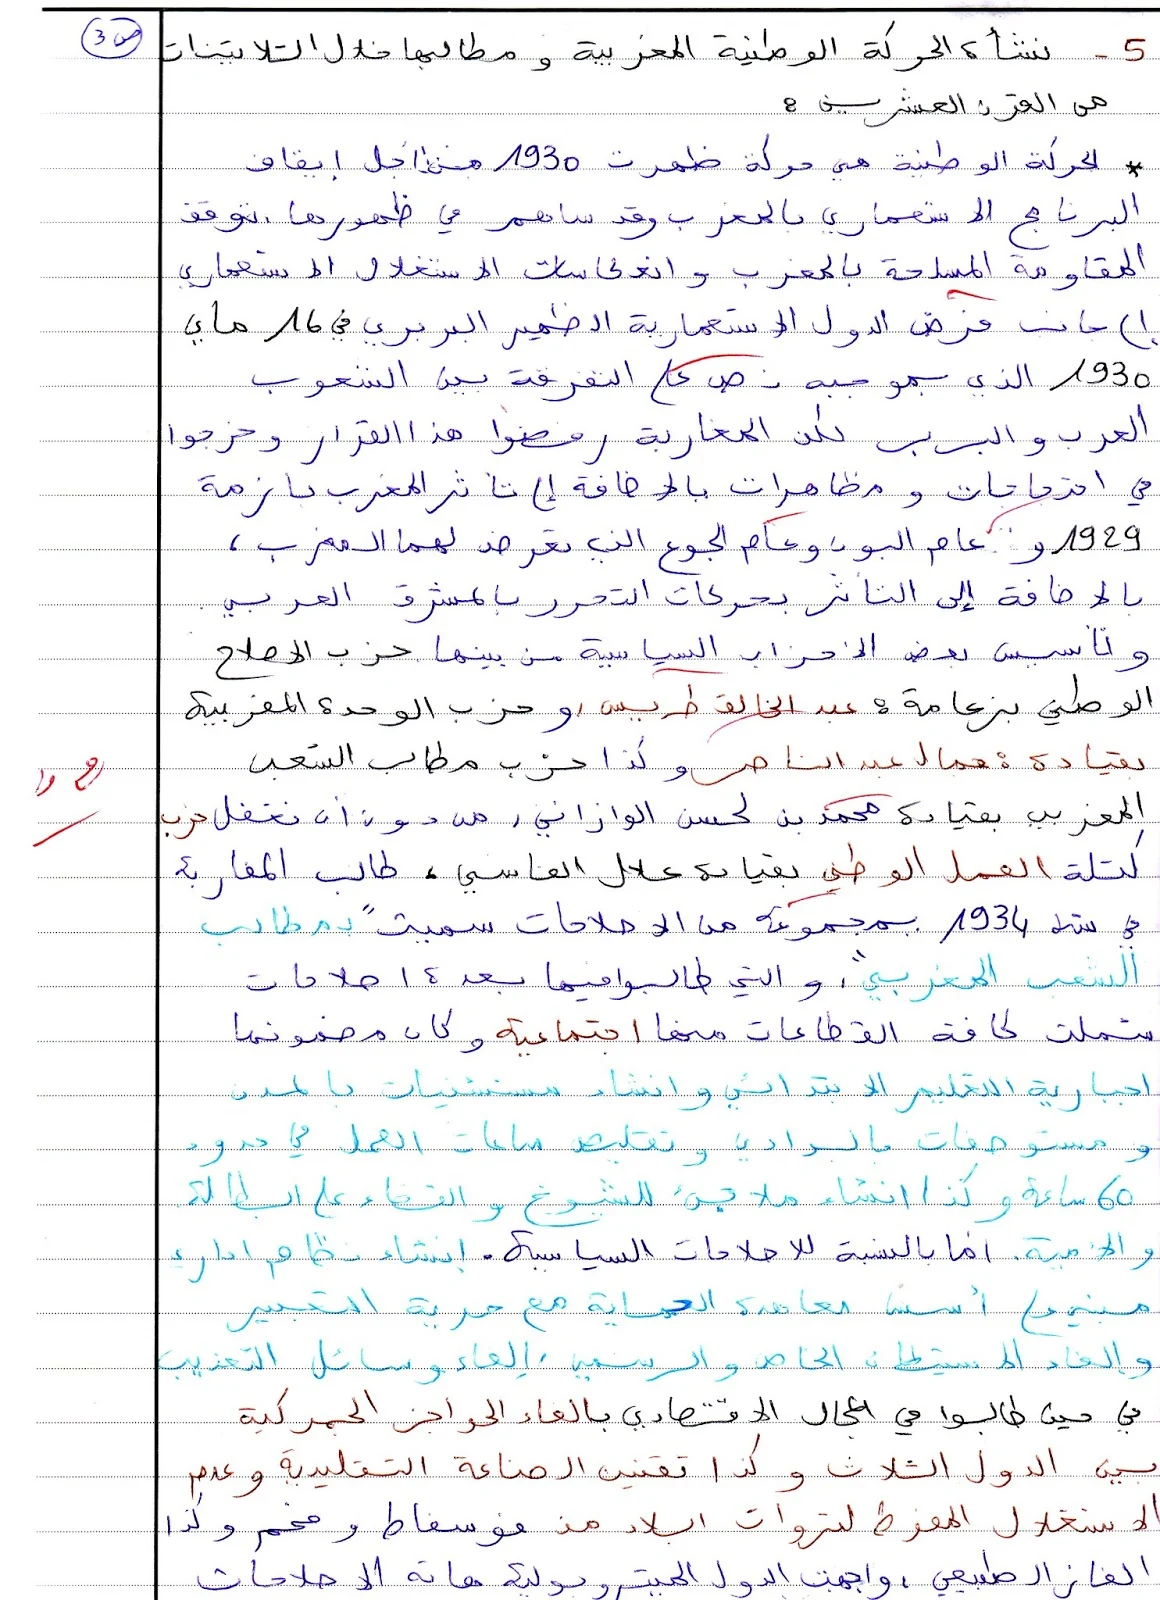 ص 3
5 - نشأة الحركة الوطنية المغربية و مطالبها خلال الثلاتينات
من القرن العشرين :
* الحركة الوطنية هي حركة ظهرت 1930 من أجل إيقاف
البرنامج الاستعماري بالمغرب وقد ساهم في ظهورها ، توقف
المقاومة المسلحة بالمغرب و انعكاسات الاستغلال الاستعماري
إلى جانب فرض الدول الاستعمارية الظهير البربري في 16 ماي
1930 الذي بموجبه نص على التفرقة بين الشعوب
العرب و البربر لكن المغاربة رفضوا هذا القرار و خرجوا
في احتجاجات و مظاهرات بالاضافة إلى تأثر المغرب بازمة
1929 و عام البون وعام الجوع التي تعرض لهما المغرب ،
بالاضافة إلى التأثر بحركات التحرر بالمشرق العربي .
و تأسيس بعض الاحزاب السياسية من بينها حزب الاصلاح
الوطني بزعامة : عبد الخالق طريس ، و حزب الوحدة المغربية
بقيادة : جمال عبد الناصر و كذا حزب مطالب الشعب
المغربي بقيادة محمد بن لحسن الوازاني ، من دون أن نغفل حزب
كتلة العمل الوطني بقيادة علال الفاسي ، طالب المغاربة
في سنة 1934 بمجموعة من الاصلاحات سميت " بمطالب
الشعب المغربي " ، و التي طالبوا فيها بعدة اصلاحات
شملت كافة القطاعات منها اجتماعية و كان مضمونها
اجبارية التعليم الابتدائي و انشاء مستشفيات بالمدن
و مستوصفات بالبوادي و تقليص ساعات العمل في حدود
60 ساعة و كذا انشاء ملاجئ للشيوخ و القضاء على البطالة
و الامية . اما بالنسبة للاصلاحات السياسية . إنشاء نظام اداري
مبني على أسس معاهدة الحماية مع حرية التعبير
و إلغاء الاستيطان الخاص و الرسمي ، إلغاء وسائل التعذيب
في حين طالبوا في المجال الاقتصادي بالغاء الحواجز الجمركية
بين الدول الثلاث و كذا تقنين الصناعة التقليدية و عدم
الاستغلال المفرط لثروات البلاد من فوسفاط و فحم و كذا
الغاز الطبيعي ، واجهت الدول هاته الاصلاحات